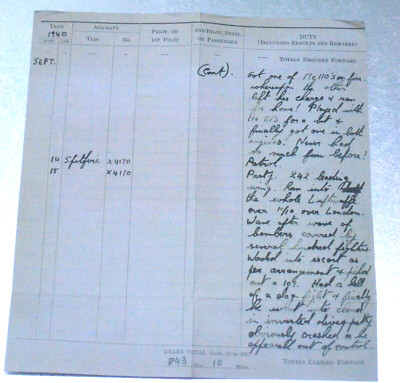 YEAR
1940
AIRCRAFT
Type
No.
PILOT, OR
1ST PILOT
2ND PILOT, PUPIL
OR PASSENGER
DUTY
(INCLUDING RESULTS AND REMARKS)
— — — — — — TOTALS BROUGHT FORWARD
SEPT.
(Cont).
Got one of Me 110's on fire
whereupon the other
left his charge & ran
for home! Played with
He 111's for a bit &
finally got one in both
engines. Never had
so much fun before!
14 Spitfire X4170
Patrol.
15 X4170
Party. 242 leading
wing. Ran into
the whole Luftwaffe
over London.
Wave after wave of
bombers covered by
several hundred fighters
Waded into escort as
per arrangement & picked
out a 109. Had a hell
of a dog fight & finally
he went into cloud
in inverted diving
obviously crashed as he
appeared out of control.
GRAND TOTAL [Cols. (1) to (10)]
843 Hrs. 10 Mins.
TOTALS CARRIED FORWARD